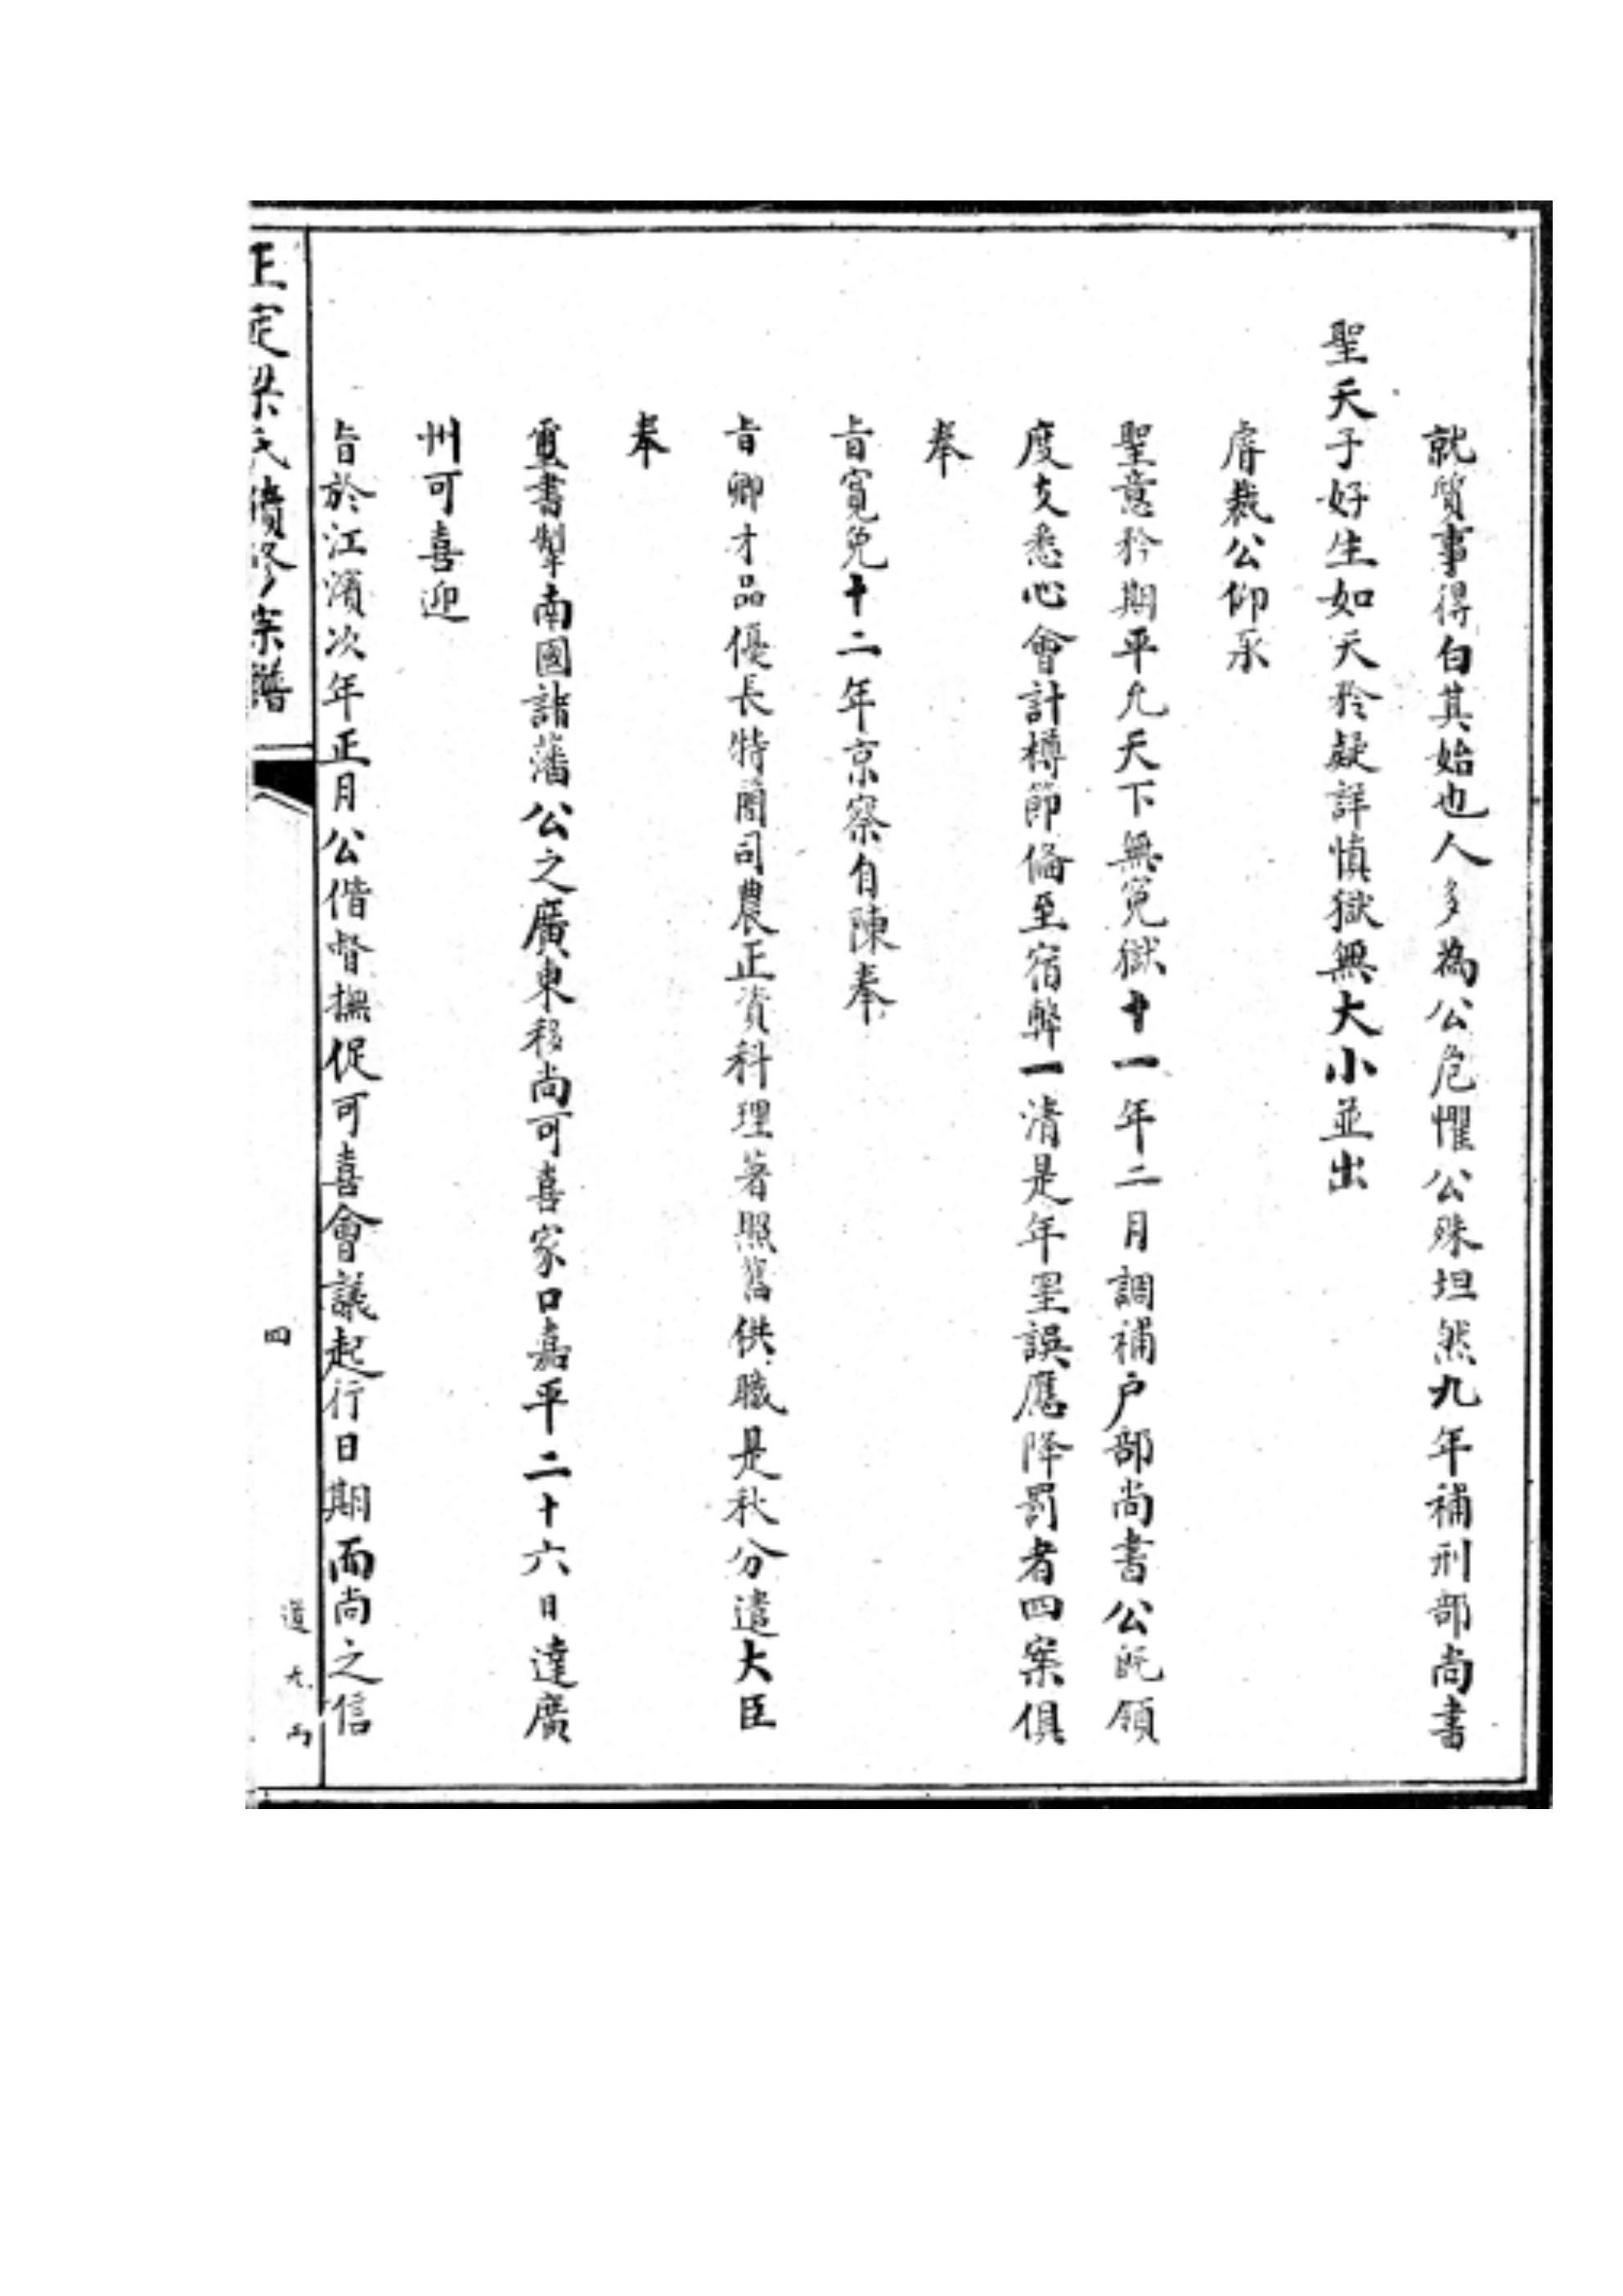 就質事得白其始也人多為公危懼公殊坦然九年補刑部尚書
聖天子好生如天矜疑詳慎獄無大小並出
睿裁公仰承
聖意矜期平允天下無冤獄十一年二月調補户部尚書公既領
度支悉心會計樽節備至宿弊一清是年罣誤應降罰者四案俱
奉
旨寬免十二年京察自陳奉
旨卿才品優長特簡司農正資料理著照舊供職是秋分遣大臣
奉
璽書掣南國諸藩公之廣東移尚可喜家口嘉平二十六日達廣
州可喜迎
旨於江濱次年正月公偕督撫促可喜會議起行日期而尚之信
正定梁氏續修宗譜
四